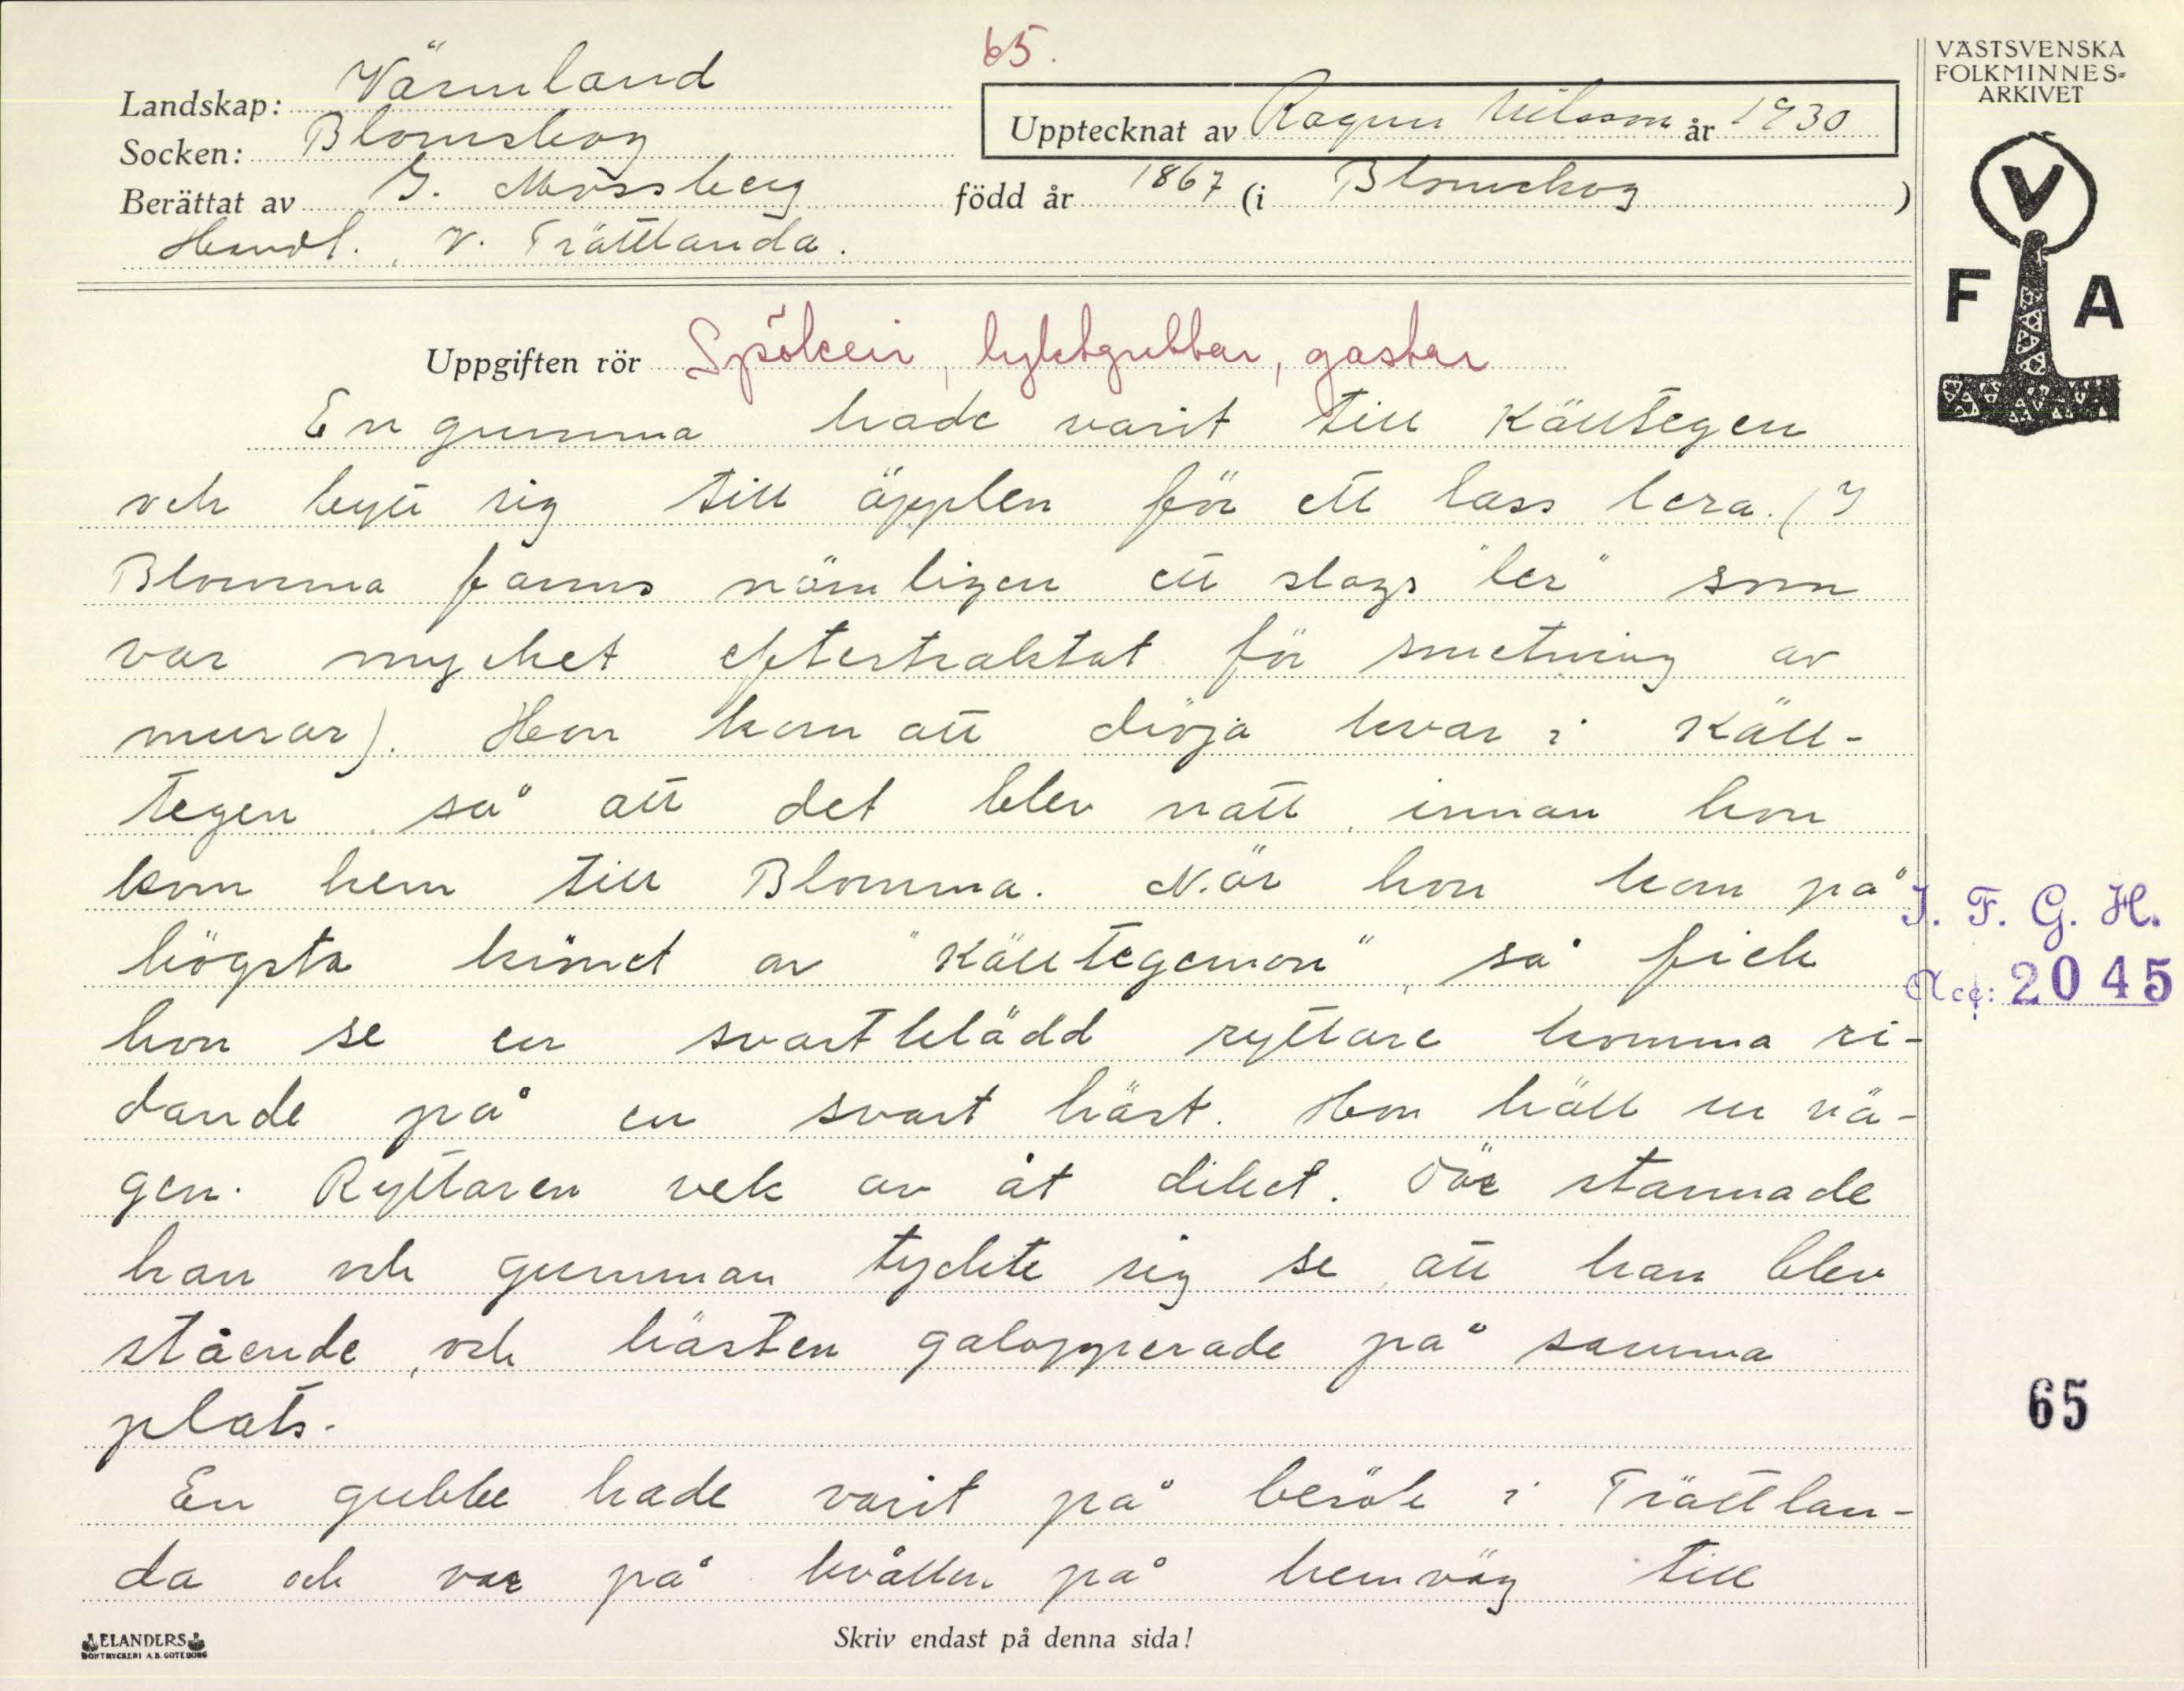 65.
Landskap: Värmland
Socken: Blomskog
Upptecknat av Ragnar Nilsson år 1930
Berättat av G. Mossberg född år 1867 (i Blomskog)
Handl. V. Trättlanda.
VÄSTSVENSKA
FOLKMINNES-
ARKIVET
V
F A
Uppgiften rör Spökeri, lyktgubbar, gastar
En gumma hade varit till Källtegen
och bytt sig till äpplen för ett lass lera. (I
Blomma fanns nämligen ett slags "ler" som
var mycket eftertraktat för smetning av
murar). Hon kom att dröja kvar i Käll-
tegen så att det blev natt innan hon
kom hem till Blomma. När hon kom på
högsta krönet av "Källtegemon" så fick
hon se en svartklädd ryttare komma ri-
dande på en svart häst. Hon höll ur vä-
gen. Ryttaren vek av åt diket. Där stannade
han och gumman tyckte sig se att han blev
stående och hästen galopperade på samma
plats.
En gubbe hade varit på besök i Trättlan-
da och var på kvällen på hemväg till
I. F. G. H.
Acc: 2045
65
ELANDERS
BOKTRYCKERI A.B. GÖTEBORG
Skriv endast på denna sida!